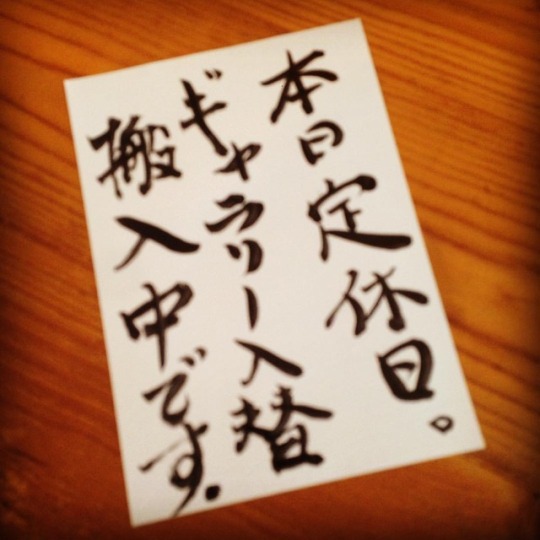 本日定休日。
ギャラリー入替
搬入中です.